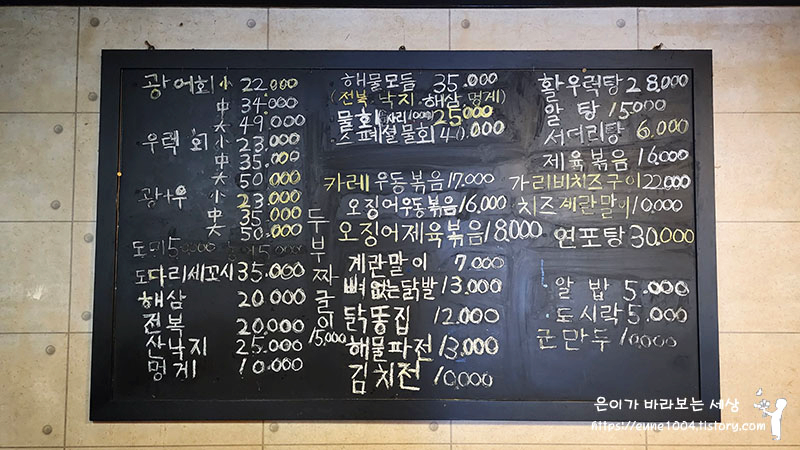 광어회 小 22.000
中 34.000
大 49.000
우럭회 小 23.000
中 35.000
大 50.000
광+우 小 23.000
中 35.000
大 50.000
도미 50000
도다리세꼬시 35.000
해삼 20.000
전복 20.000
산낙지 25.000
멍게 10.000
두부짜글이 15,000
해물모듬 35.000
(전복, 낙지, 해삼, 멍게)
물회 (사리1000) 25.000
스페셜물회 40.000
카레우동볶음 17.000
오징어우동볶음 16.000
오징어제육볶음 18,000
계란말이 7.000
뼈없는닭발 13,000
닭똥집 12.000
해물파전 13.000
김치전 10,000
활우럭탕 28,000
알탕 15000
서더리탕 6.000
제육볶음 16,000
가리비치즈구이 22,000
치즈계란말이 10.000
연포탕 30.000
·알밥 5.000
·도시락 5.000
군만두 10,000
은이가 바라보는 세상
https://eune1004.tistory.com